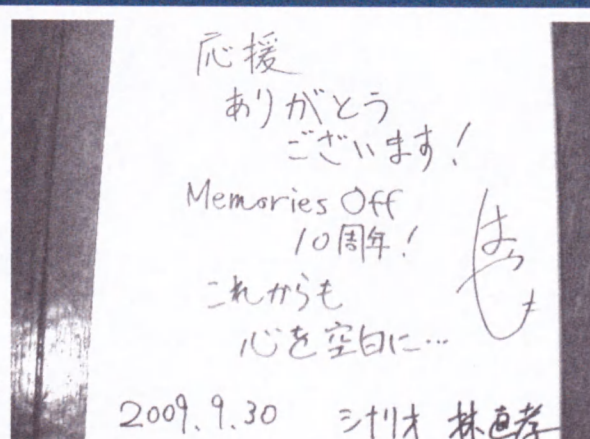 応援
ありがとう
ございます!
Memories Off
10周年!
これからも
心を空白に…
はやし
2009.9.30 シナリオ 林直孝